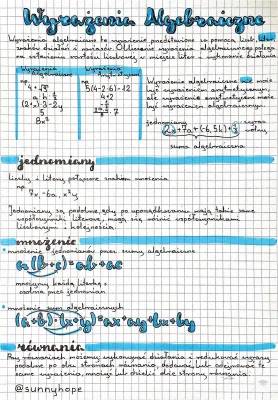 Wyrażenia Algebraiczne
Wyrażenia algebraiczne to wyrażenie przedstawione za pomocą liczb, liter,
znaków działań i nawiasów. Obliczanie wyrażenia algebraicznego polega
na wstawieniu wartości liczbowej w miejsce liter i wykonanie działania
Wyrażenia
Algebraiczne
Wyrażenia
Arytmetyczne
np.
np.
5(4-2·6)-12
4+2
8x²
Wyrażenie algebraiczne nie może
być wyrażeniem arytmetycznym,
ale wyrażenie arytmetyczne może
być wyrażeniem algebraicznym
jednomiany
wyraz
wolny
2a+7a+(-6,5k)+3
suma algebraiczna
jednomiany
Liczby i litery połączone znakiem mnożenia
np.
7x, -6a, x²y
Jednomiany są podobne, gdy po uporządkowaniu mają takie same
współczynniki literowe, mogą się różnić współczynnikami
liczbowymi i kolejnością
mnożenie
mnożenie jednomianów przez sumy algebraiczne
a(b+c)=ab+ac
mnożymy każdą literkę z
osobna przez jednomian
mnożenie sum algebraicznych
(a+b)·(x+y)=ax+ay+bx+by
równania
Przy równaniach możemy wykonywać działania i redukować wyrazy
podobne po obu stronach równania, dodawać lub odejmować te
same wyrażenia, mnożyć lub dzielić obie strony równania.
@sunnyhope